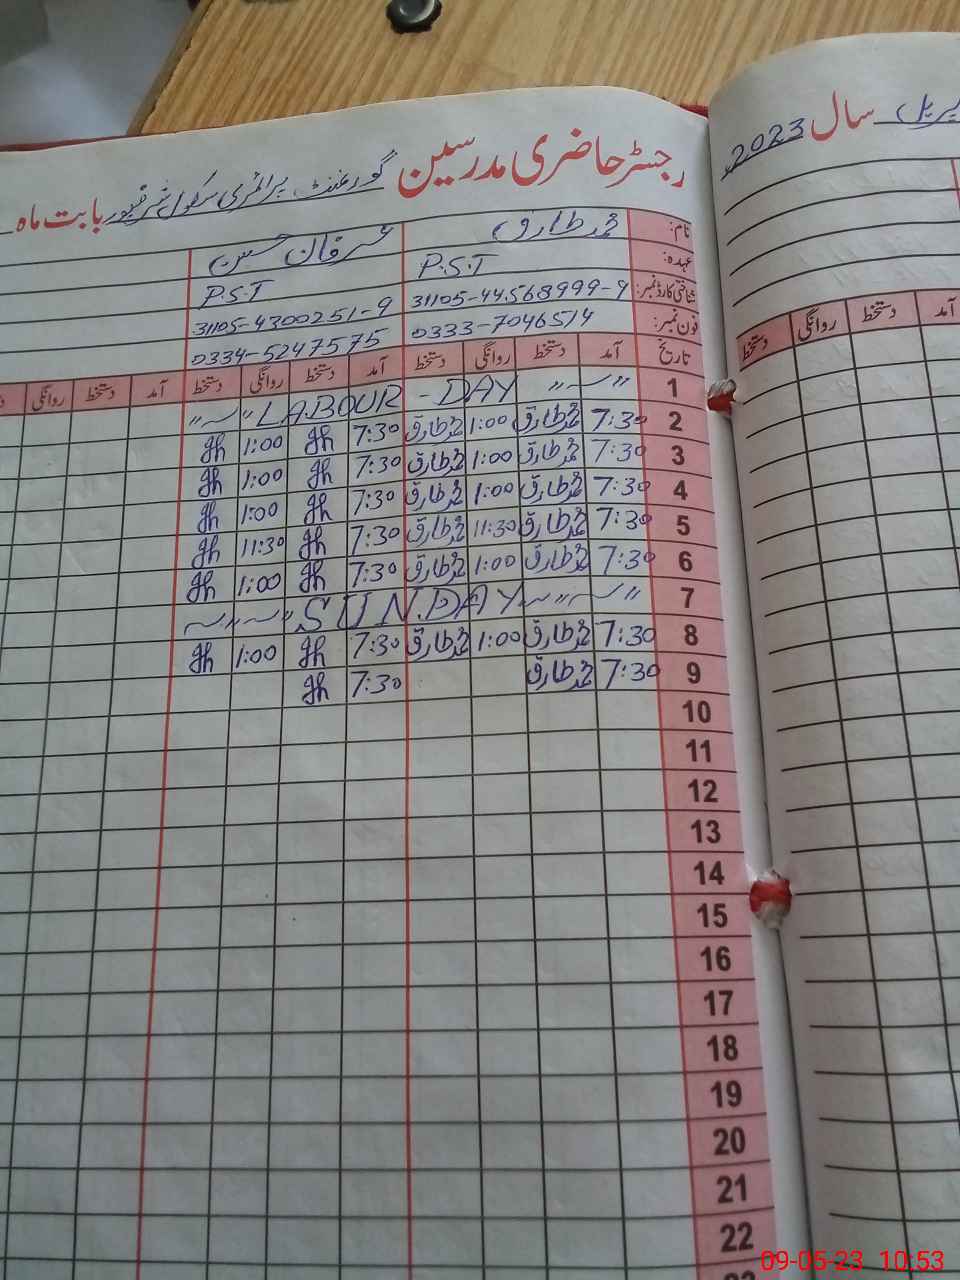 رجسٹر حاضری مدرسین گورنمنٹ پرائمری سکول بابت ماہ
سال 2023
نام: محمد طارق عرفان حسین
عہدہ: P.S.T P.S.T
شناختی کارڈ نمبر: 31105-44568999-9 31105-4300251-9
فون نمبر: 0333-7046514 0334-5247575
تاریخ آمد دستخط روانگی دستخط آمد دستخط روانگی دستخط آمد دستخط روانگی
آمد دستخط روانگی دستخط
1 LABOUR - DAY
2 7:30 محمد طارق 1:00 محمد طارق 7:30 1:00
3 7:30 محمد طارق 1:00 محمد طارق 7:30 1:00
4 7:30 محمد طارق 1:00 محمد طارق 7:30 1:00
5 7:30 محمد طارق 11:30 محمد طارق 7:30 11:30
6 7:30 محمد طارق 1:00 محمد طارق 7:30 1:00
7 SUNDAY
8 7:30 محمد طارق 1:00 محمد طارق 7:30 1:00
9 7:30 محمد طارق 7:30
10
11
12
13
14
15
16
17
18
19
20
21
22
09-05-23 10:53